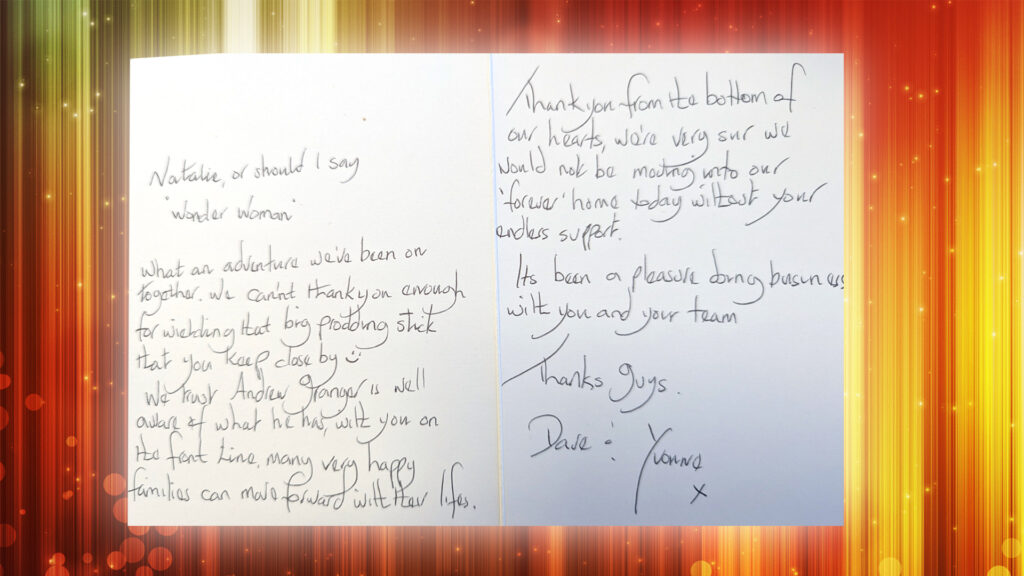 Natalie, or should I say
'Wonder Woman'
What an adventure we've been on
together. We can't thank you enough
for wielding that big prodding stick
that you keep close by
We trust Andrew Granger is well
aware of what he has, with you on
the front line, many very happy
families can move forward with their lifes.
Thank you from the bottom of
our hearts, we're very sur we
would not be moving into our
'forever' home today without your
endless support.
Its been a pleasure doing business
with you and your team
Thanks guys.
Dave & Yvonne
x